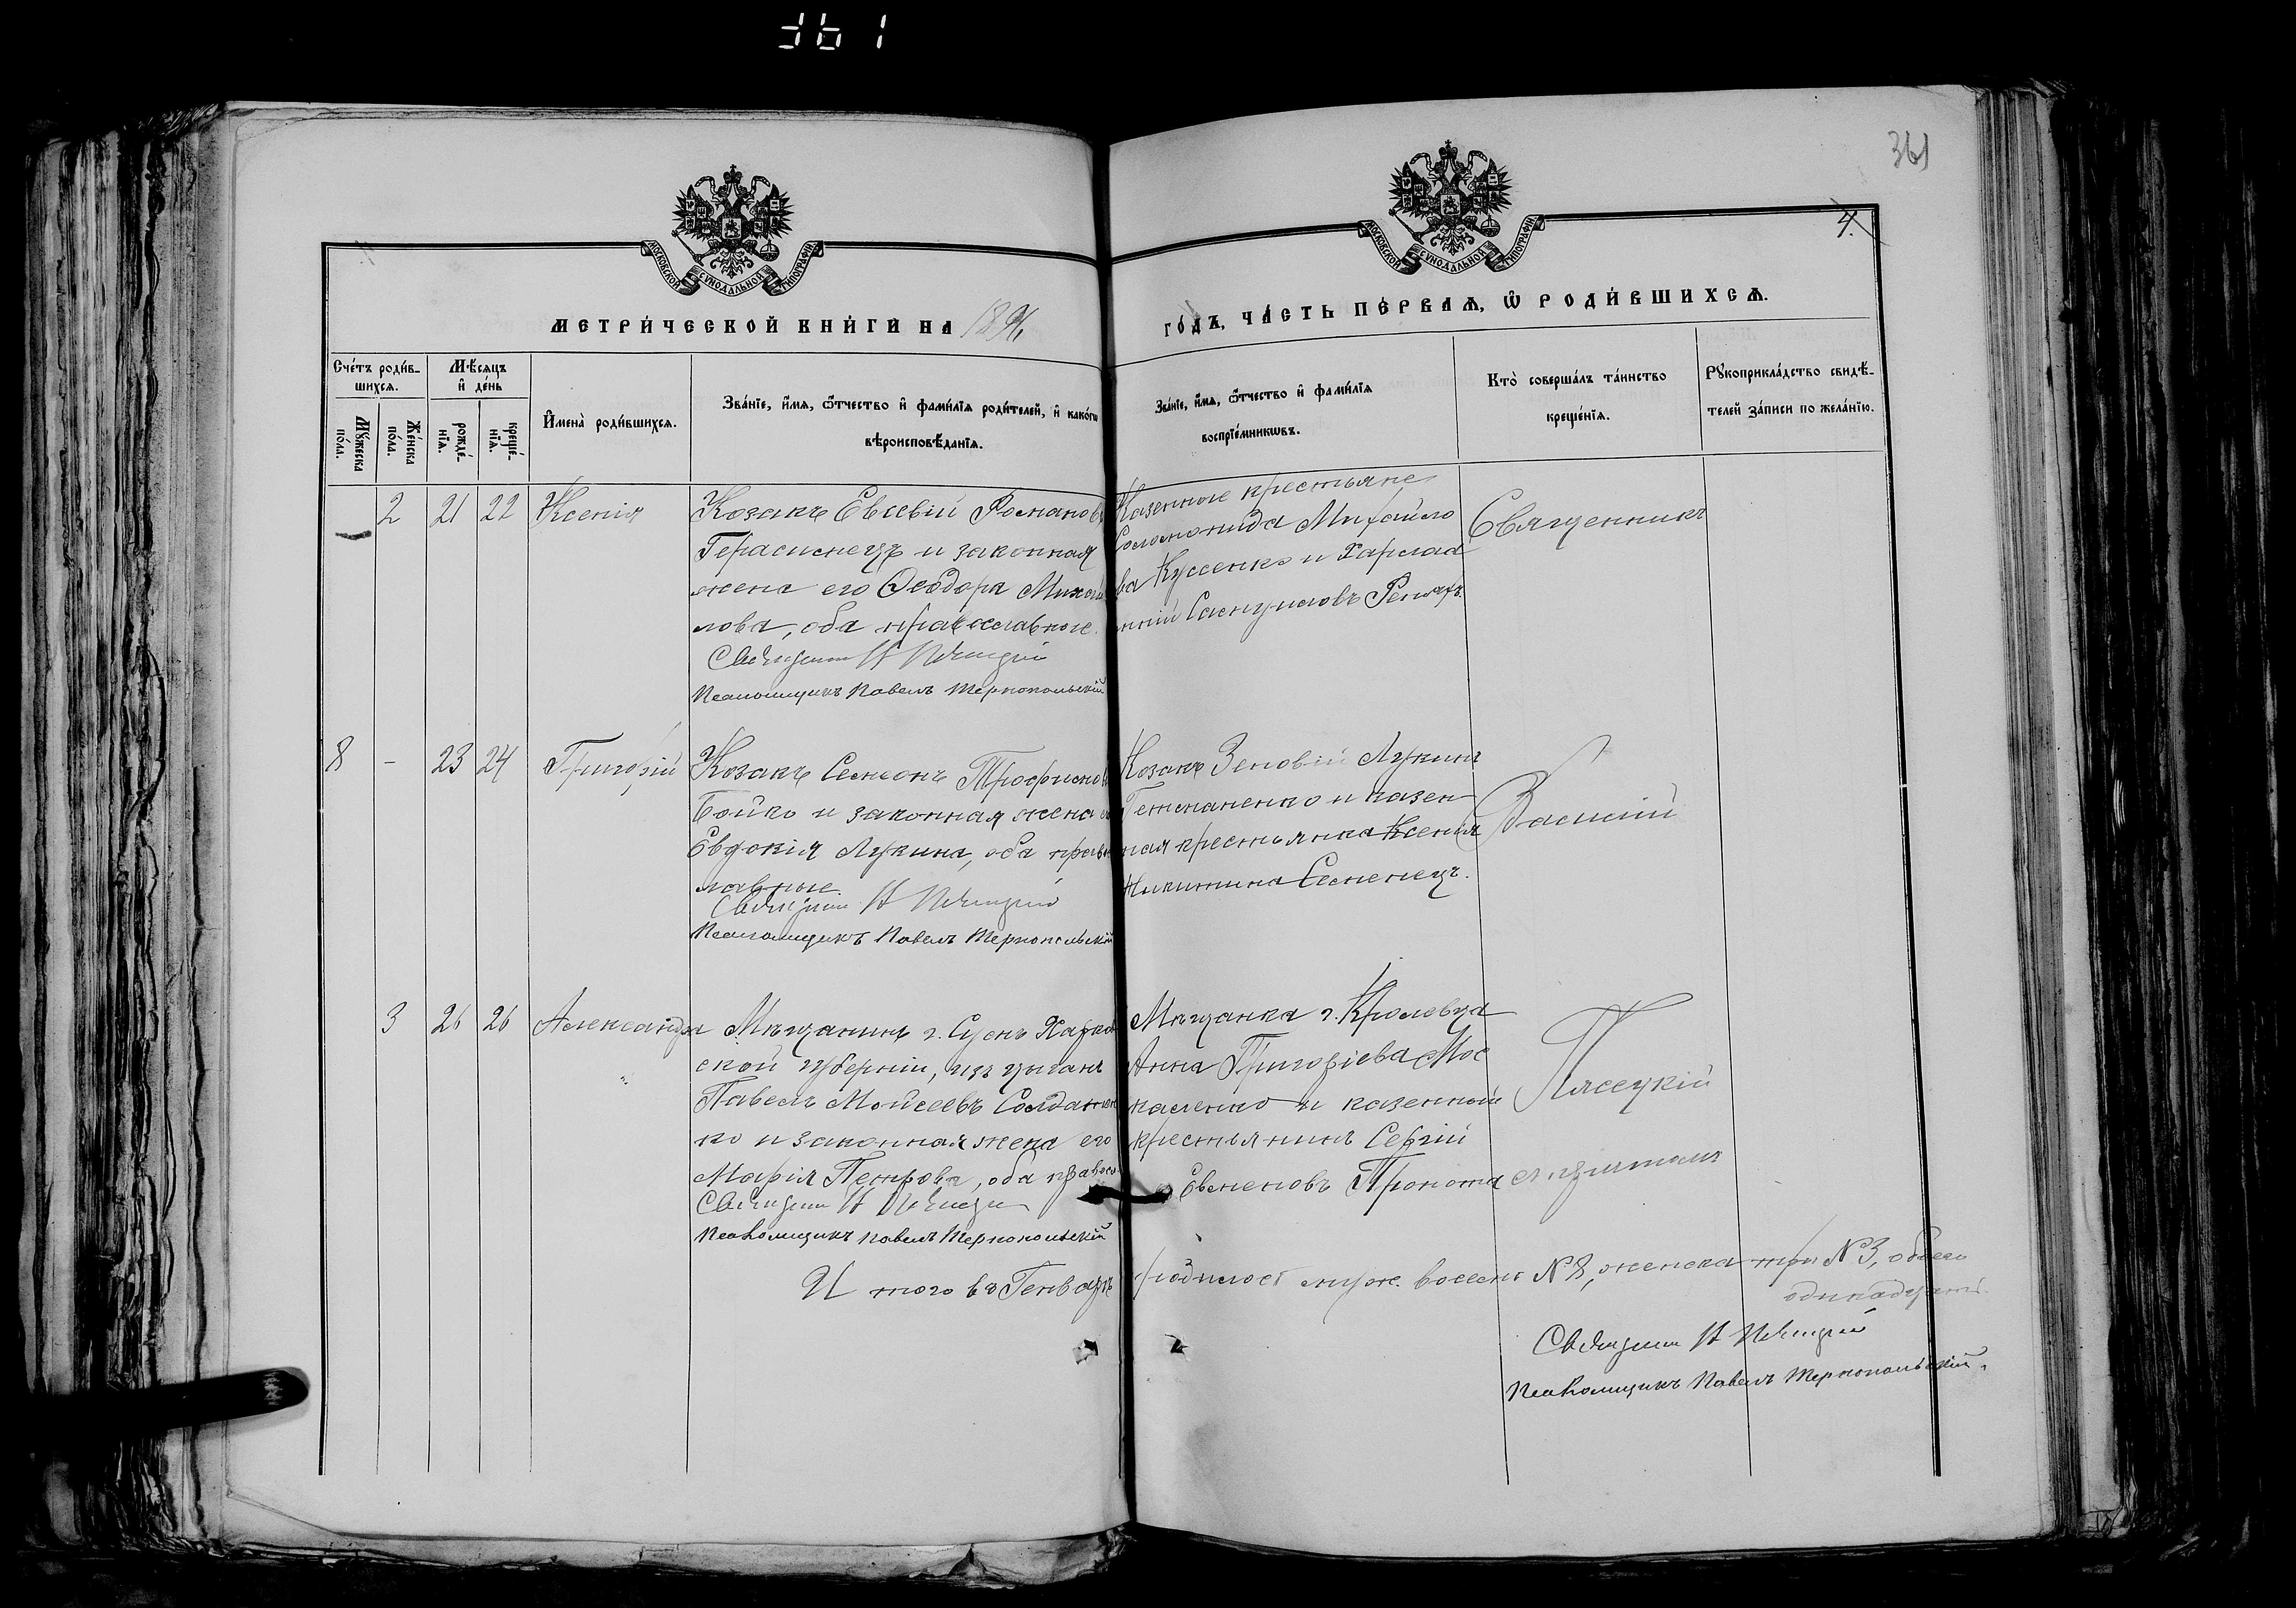 361
361
4.
МОСКОВСКОЙ СѴНОДАЛЬНОЙ ТИПОГРАФІИ
МОСКОВСКОЙ СѴНОДАЛЬНОЙ ТИПОГРАФІИ
МЕТРИ́ЧЕСКОЙ КНИ́ГИ НА 1896
ГО́ДЪ, ЧА́СТЬ ПЕ́РВАѦ, Ѡ РОДИ́ВШИХСѦ.
Сче́тъ роди́в-
шихсѧ.
Мꙋ́жеска по́ла.
Же́нска по́ла.
Мѣ́сѧцъ
и҆ де́нь
рожде́-
нїѧ.
креще́-
нїѧ.
И҆мена̀ роди́вшихсѧ.
Зва́нїе, и҆́мѧ, ѻ҆́тчество и҆ фами́лїѧ роди́телей, и҆ како́гѡ
вѣроисповѣ́данїѧ.
Зва́нїе, и҆́мѧ, ѻ҆́тчество и҆ фами́лїѧ
воспрїе́мникѡвъ.
Кто̀ соверша́лъ та́инство
креще́нїѧ.
Рꙋкоприкла́дство свидѣ́-
телей за́писи по жела́нїю.
2 21 22 Ксенія
Козакъ Евсевій Романовъ
Герасимецъ и законная
жена его Ѳеодора Михай
лова, оба православные.
Священн
Псаломщикъ Павелъ Тернопольскій
Казенные крестьяне
Соломонида Михайло
ва Куценко и Харлам
пій Самуиловъ
Священникъ
8 - 23 24 Григорій
Козакъ Семіонъ Трофимовъ
Бойко и законная жена его
Евдокія Лукина, оба правос
лавные.
Священн
Псаломщикъ Павелъ Тернопольскій
Козакъ Зеновій Лукинъ
Гетманенко и казен
ная крестьянка Ксенія
Никитина Семенецъ.
Василій
3 26 26 Александра
Мѣщанинъ г. Сумъ Харков
ской губерніи, изъ цыганъ
Павелъ Мойсеевъ Солдатен
ко и законная жена его
Марія Петрова, оба правосл
Священн
Псаломщикъ Павелъ Тернопольскій
Мѣщанка г. Кролевца
Анна Григоріева Мос
каленко и казенный
крестьянинъ Сергій
Евменовъ Прокопа
Пясецкій
И того въ Генварѣ родилось муж. восемь №8, женска три №3, обоего
одинадцать.
Священн
Псаломщикъ Павелъ Тернопольскій.